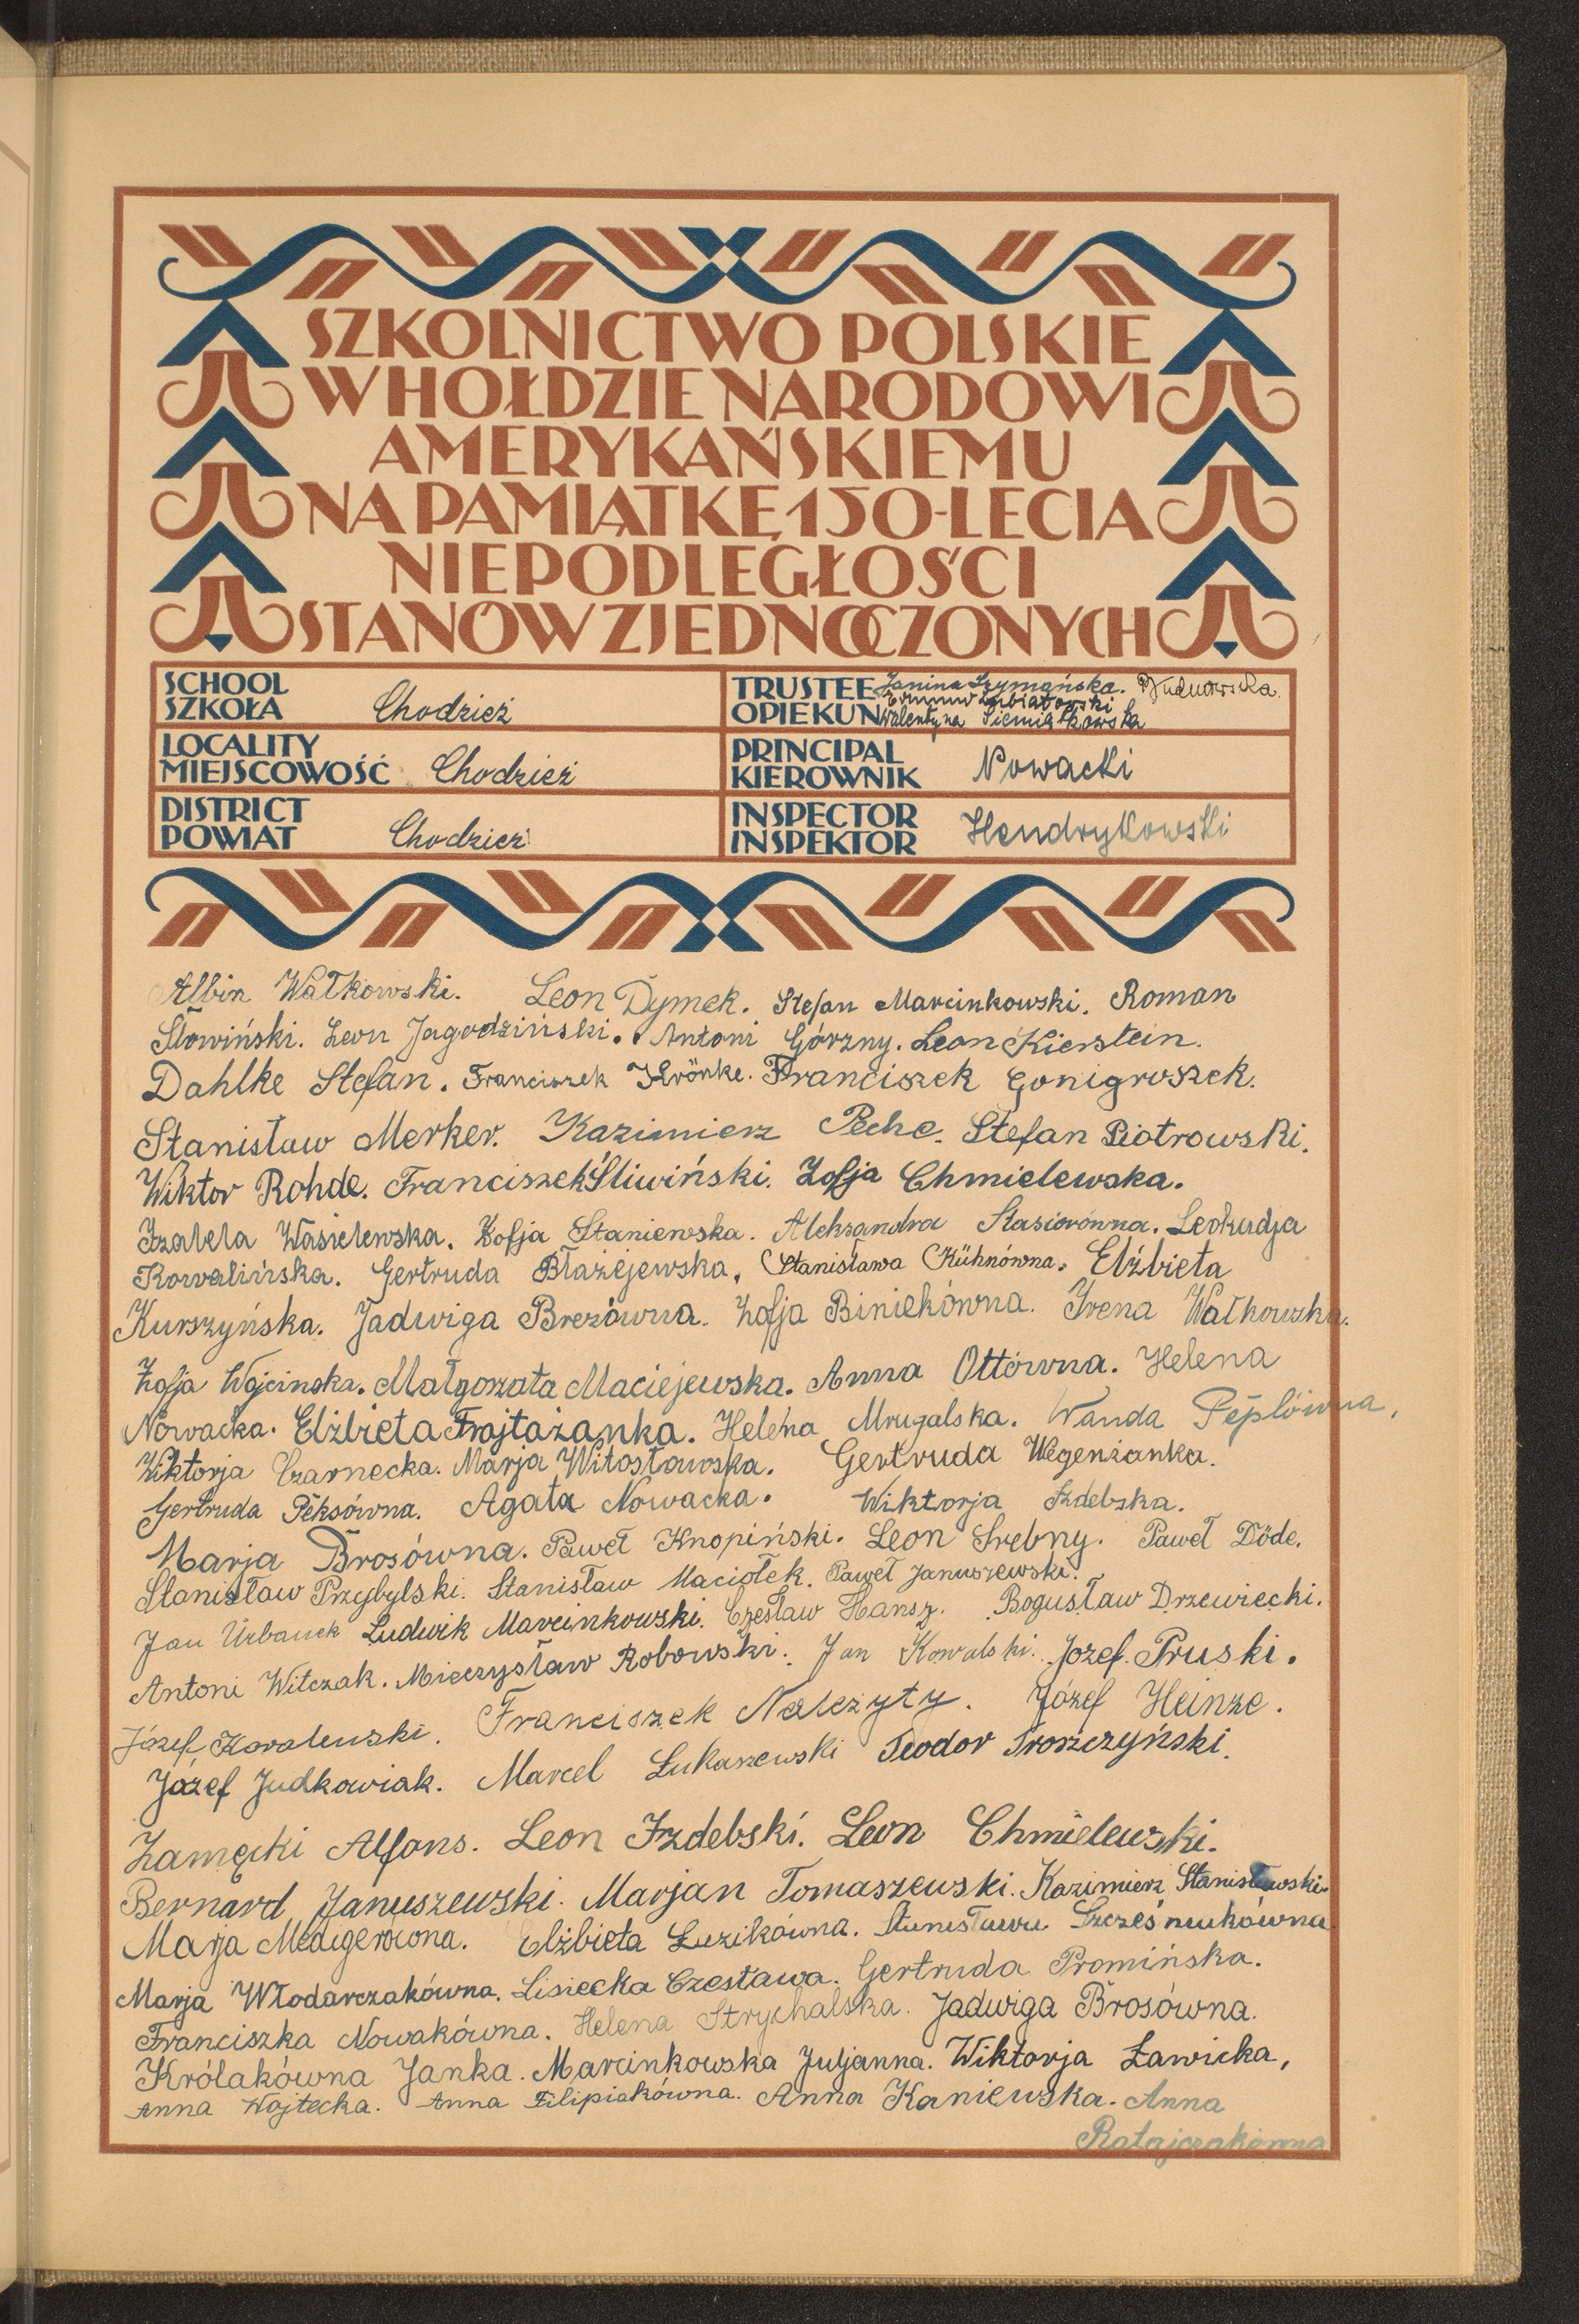 SZKOLNICTWO POLSKIE
W HOŁDZIE NARODOWI
AMERYKAŃSKIEMU
NA PAMIĄTKĘ 150-LECIA
NIEPODLEGŁOŚCI
STANÓW ZJEDNOCZONYCH
SCHOOL
SZKOŁA Chodzież
TRUSTEE Janina Szymańska.
OPIEKUN Walentyna Siemiątkowska
LOCALITY
MIEJSCOWOŚĆ Chodzież
PRINCIPAL
KIEROWNIK Nowacki
DISTRICT
POWIAT Chodzież
INSPECTOR
INSPEKTOR Hendrykowski
Albin Wałkowski. Leon Dymek. Stefan Marcinkowski. Roman
Słowiński. Leon Jagodziński. Antoni Górzny. Leon Kierstein.
Dahlke Stefan. Franciszek Krönke. Franciszek Gonigroszek.
Stanisław Merker. Kazimierz Peche. Stefan Piotrowski.
Wiktor Rohde. Franciszek Śliwiński. Zofja Chmielewska.
Izabela Wasielewska. Zofja Staniewska. Aleksandra Stasiorówna. Leokadja
Kowalińska. Gertruda Błażejewska. Stanisława Kühnówna. Elżbieta
Kurszyńska. Jadwiga Brezówna. Zofja Biniekówna. Irena Wałkowska.
Zofja Wójcinska. Małgorzata Maciejewska. Anna Ottówna. Helena
Nowacka. Elżbieta Frajtażanka. Helena Mrugalska. Wanda Peplówna,
Wiktorja Czarnecka. Marja Witosławska. Gertruda Wegenżanka.
Gertruda Peksówna. Agata Nowacka. Wiktorja Izdebska.
Marja Brosówna. Paweł Knopiński. Leon Srebny. Paweł Döde.
Stanisław Przybylski. Stanisław Maciołek. Paweł Januszewski.
Jan Urbanek Ludwik Marcinkowski. Czesław Hansz. Bogusław Drzewiecki.
Antoni Witczak. Mieczysław Robowski. Jan Kowalski. Józef Pruski.
Józef Koralewski. Franciszek Należyty. Józef Heinze.
Józef Judkowiak. Marcel Łukaszewski Teodor Troszczyński.
Zamęcki Alfons. Leon Izdebski. Leon Chmielewski.
Bernard Januszewski. Marjan Tomaszewski. Kazimierz Stanisławski.
Marja Elżbieta Łuzikówna. Stanisława
Marja Włodarczakówna. Lisiecka Czesława. Gertruda Promińska.
Franciszka Nowakówna. Helena Strychalska. Jadwiga Brosówna.
Królakówna Janka. Marcinkowska Juljanna. Wiktorja Ławicka,
Anna Wojtecka. Anna Filipiakówna. Anna Kaniewska. Anna
Ratajczakówna